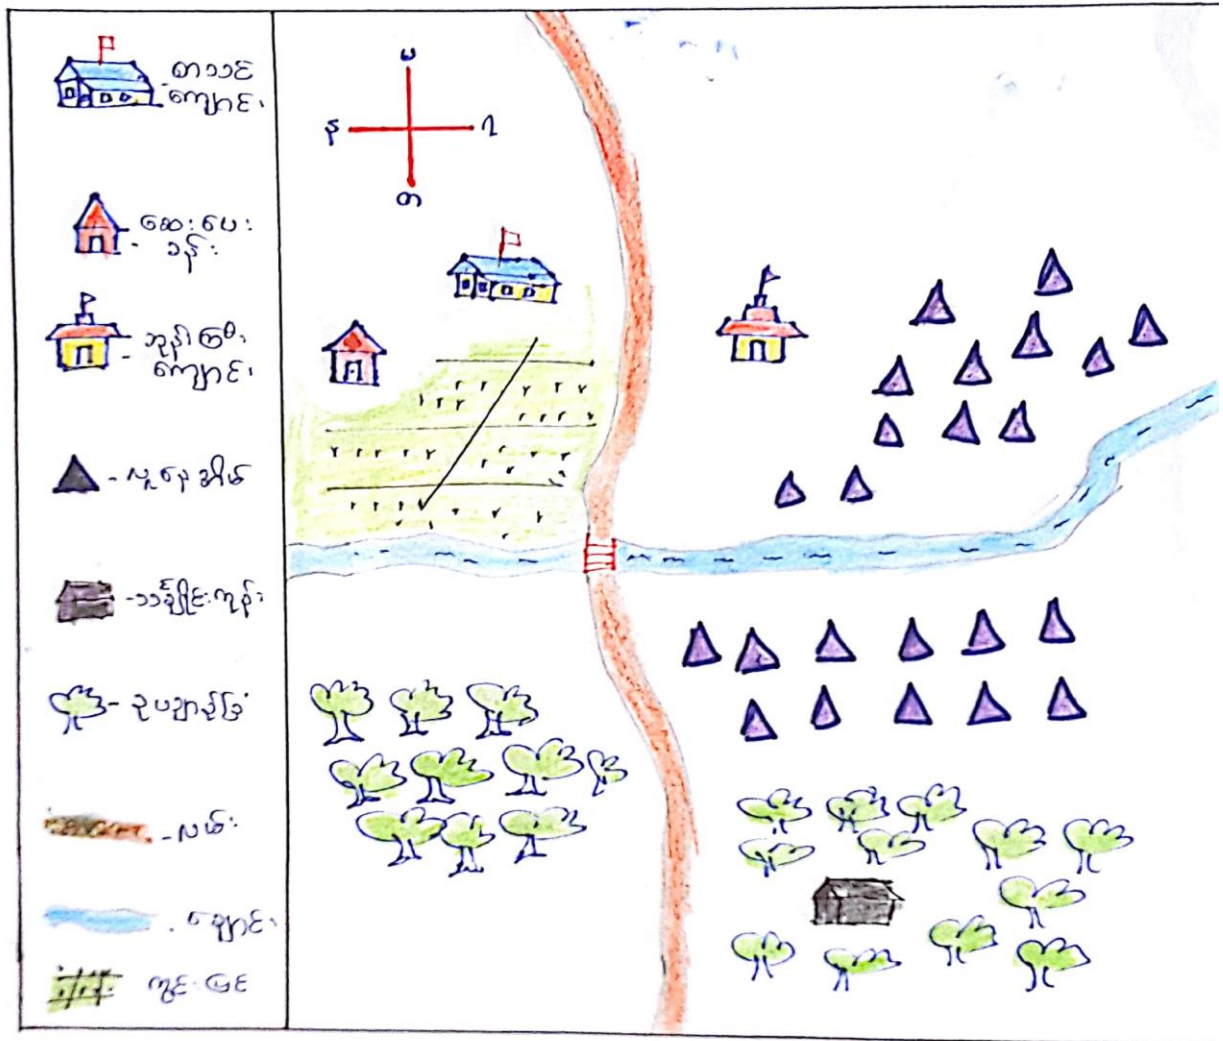 စာသင်
ကျောင်း
ဆေးပေး
ခန်း
ဘုန်းကြီး
ကျောင်း
လူနေအိမ်
သင်္ချိုင်းကုန်း
ဥယျာဉ်ခြံ
လမ်း
ချောင်း
ကွင်းပြင်
မ
န
ရ
တ